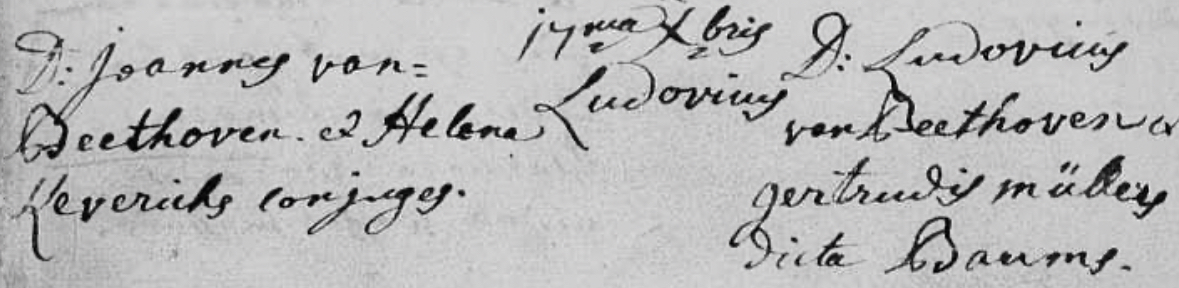 D: Joannes van=
Beethoven. & Helena
Keverichs conjuges.
17ma Xbris
Ludovicus
D: Ludovicus
van Beethoven &
gertrudis müllers
dicta Baums.